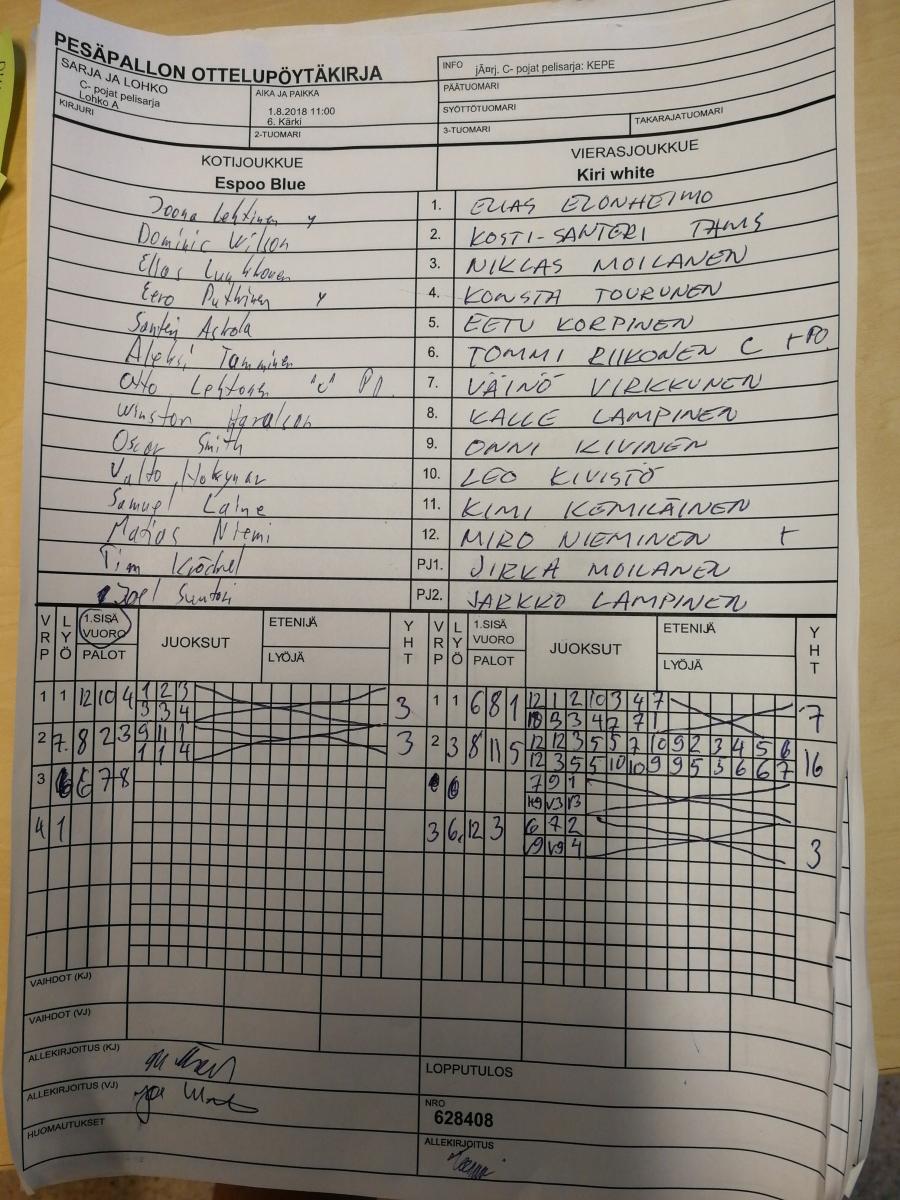 PESÄPALLON OTTELUPÖYTÄKIRJA
SARJA JA LOHKO
C- pojat pelisarja
Lohko A
KIRJURI
AIKA JA PAIKKA
1.8.2018 11:00
6. Kärki
2-TUOMARI
INFO jÃ¤rj. C- pojat pelisarja: KEPE
PÄÄTUOMARI
SYÖTTÖTUOMARI
3-TUOMARI TAKARAJATUOMARI
KOTIJOUKKUE VIERASJOUKKUE
Espoo Blue Kiri white
Joona Lehtinen y 1. ELIAS ELONHEIMO
Dominic Wilson 2. KOSTI-SANTERI TAMS
Elias 3. NIKLAS MOILANEN
Eero y 4. KONSTA TOURUNEN
Santeri Askola 5. EETU KORPINEN
Aleksi Tamminen 6. TOMMI RIIKONEN C + PO.
Otto Lehtonen "c" 7. VÄINÖ VIRKKUNEN
Winston 8. KALLE LAMPINEN
Oscar Smith 9. ONNI KIVINEN
Valto 10. LEO KIVISTÖ
Samuel Laine 11. KIMI KEMILÄINEN
Matias Niemi 12. MIRO NIEMINEN +
Tim PJ1. JIRKA MOILANEN
Joel PJ2. JARKKO LAMPINEN
VRP LYÖ 1.SISÄ VUORO PALOT JUOKSUT ETENIJÄ LYÖJÄ YHT VRP LYÖ 1.SISÄ VUORO PALOT JUOKSUT ETENIJÄ LYÖJÄ YHT
1 1 12 10 4 1 2 3 3 1 1 6 8 1 12 1 2 10 3 4 7 7
3 3 4 3 3 4 7 7 1
2 7. 8 2 3 9 11 1 3 2 3 8 11 5 12 12 3 5 5 7 10 9 2 3 4 5 6 16
1 1 4 12 3 5 5 10 10 9 9 5 3 6 6 7
3 6 6 7 8 6 7 9 1
4 1 3 6. 12 3 6 7 2 3
VAIHDOT (KJ)
VAIHDOT (VJ)
ALLEKIRJOITUS (KJ)
LOPPUTULOS
ALLEKIRJOITUS (VJ)
NRO
628408
HUOMAUTUKSET
ALLEKIRJOITUS